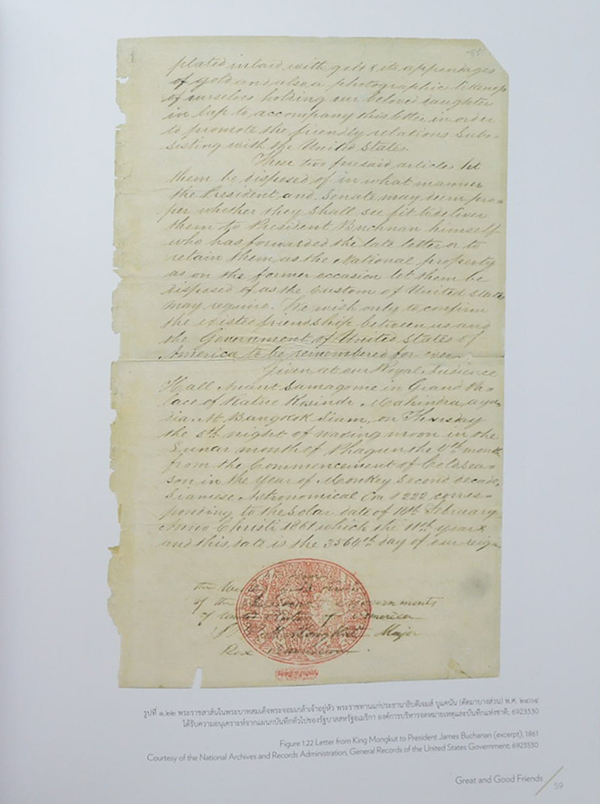 plated inlaid with gold & its appendages
of gold and also a photographic likeness
of ourselves holding our beloved daughter
in lap to accompany this letter in order
to promote the friendly relations subs-
isting with the United States.
These two foresaid articles let
them be disposed of in what manner
the President and Senate may deem pro-
per whether they shall see fit to deliver
them to President Buchnan himself
who has forwarded the late letter or to
retain them as the National property
as on the former occasion let them be
disposed of as the Custom of United States
may require. We wish only to confirm
the existed friendship between us and
the Government of United States of
America to be remembered for ever.
Given at our Royal Audience
Hall Anant Samagome in Grand Pa-
lace of Ratne Kosinde Mahindra ayu-
dia At Bangkok Siam, on Thursday
the 5th night of waning moon in the
Lunar month of Phagun the 4th month
from the Commencement of Cold Sea-
son in the Year of Monkey Second decade
Siamese Astronomical Era 1222 corres-
ponding to the Solar date of 14th February
Anno Christi 1861 which the 11th year &
and this date is the 3564th day of our reign
of the
of America
Major
Rex
รูปที่ ๑.๒๒ พระราชสาส์นในพระบาทสมเด็จพระจอมเกล้าเจ้าอยู่หัว พระราชทานแก่ประธานาธิบดีเจมส์ บูแคนัน (คัดมาบางส่วน) พ.ศ. ๒๔๐๔
ได้รับความอนุเคราะห์จากแผนกบันทึกทั่วไปของรัฐบาลสหรัฐอเมริกา องค์การบริหารจดหมายเหตุและบันทึกแห่งชาติ, 6923530
Figure 1.22 Letter from King Mongkut to President James Buchanan (excerpt), 1861
Courtesy of the National Archives and Records Administration, General Records of the United States Government, 6923530
Great and Good Friends
59